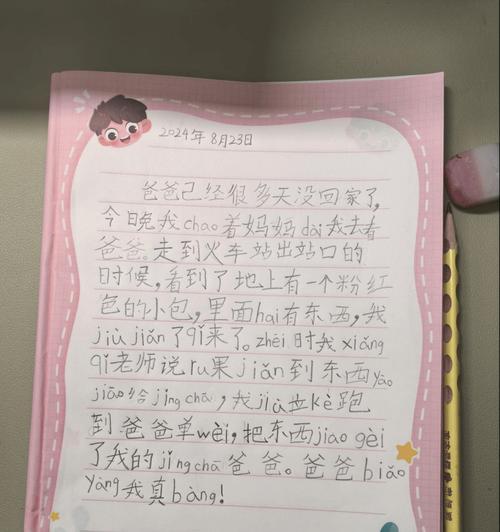 2024年8月23日
爸爸已经很多天没回家了,
今晚我chao着妈妈dài我去看
爸爸。走到火车站出站口的
时候,看到了地上有一个粉红
色的小包,里面hai有东西,我
jiù jiǎn了qǐ来了。zhèi时我xiǎng
qǐ老师说ru果jiǎn到东西yào
jiāo给jǐng chá,我jiù立kè跑
到爸爸单wèi,把东西jiao gèi
了我的jǐng chā爸爸。爸爸biǎo
yáng我真bàng!